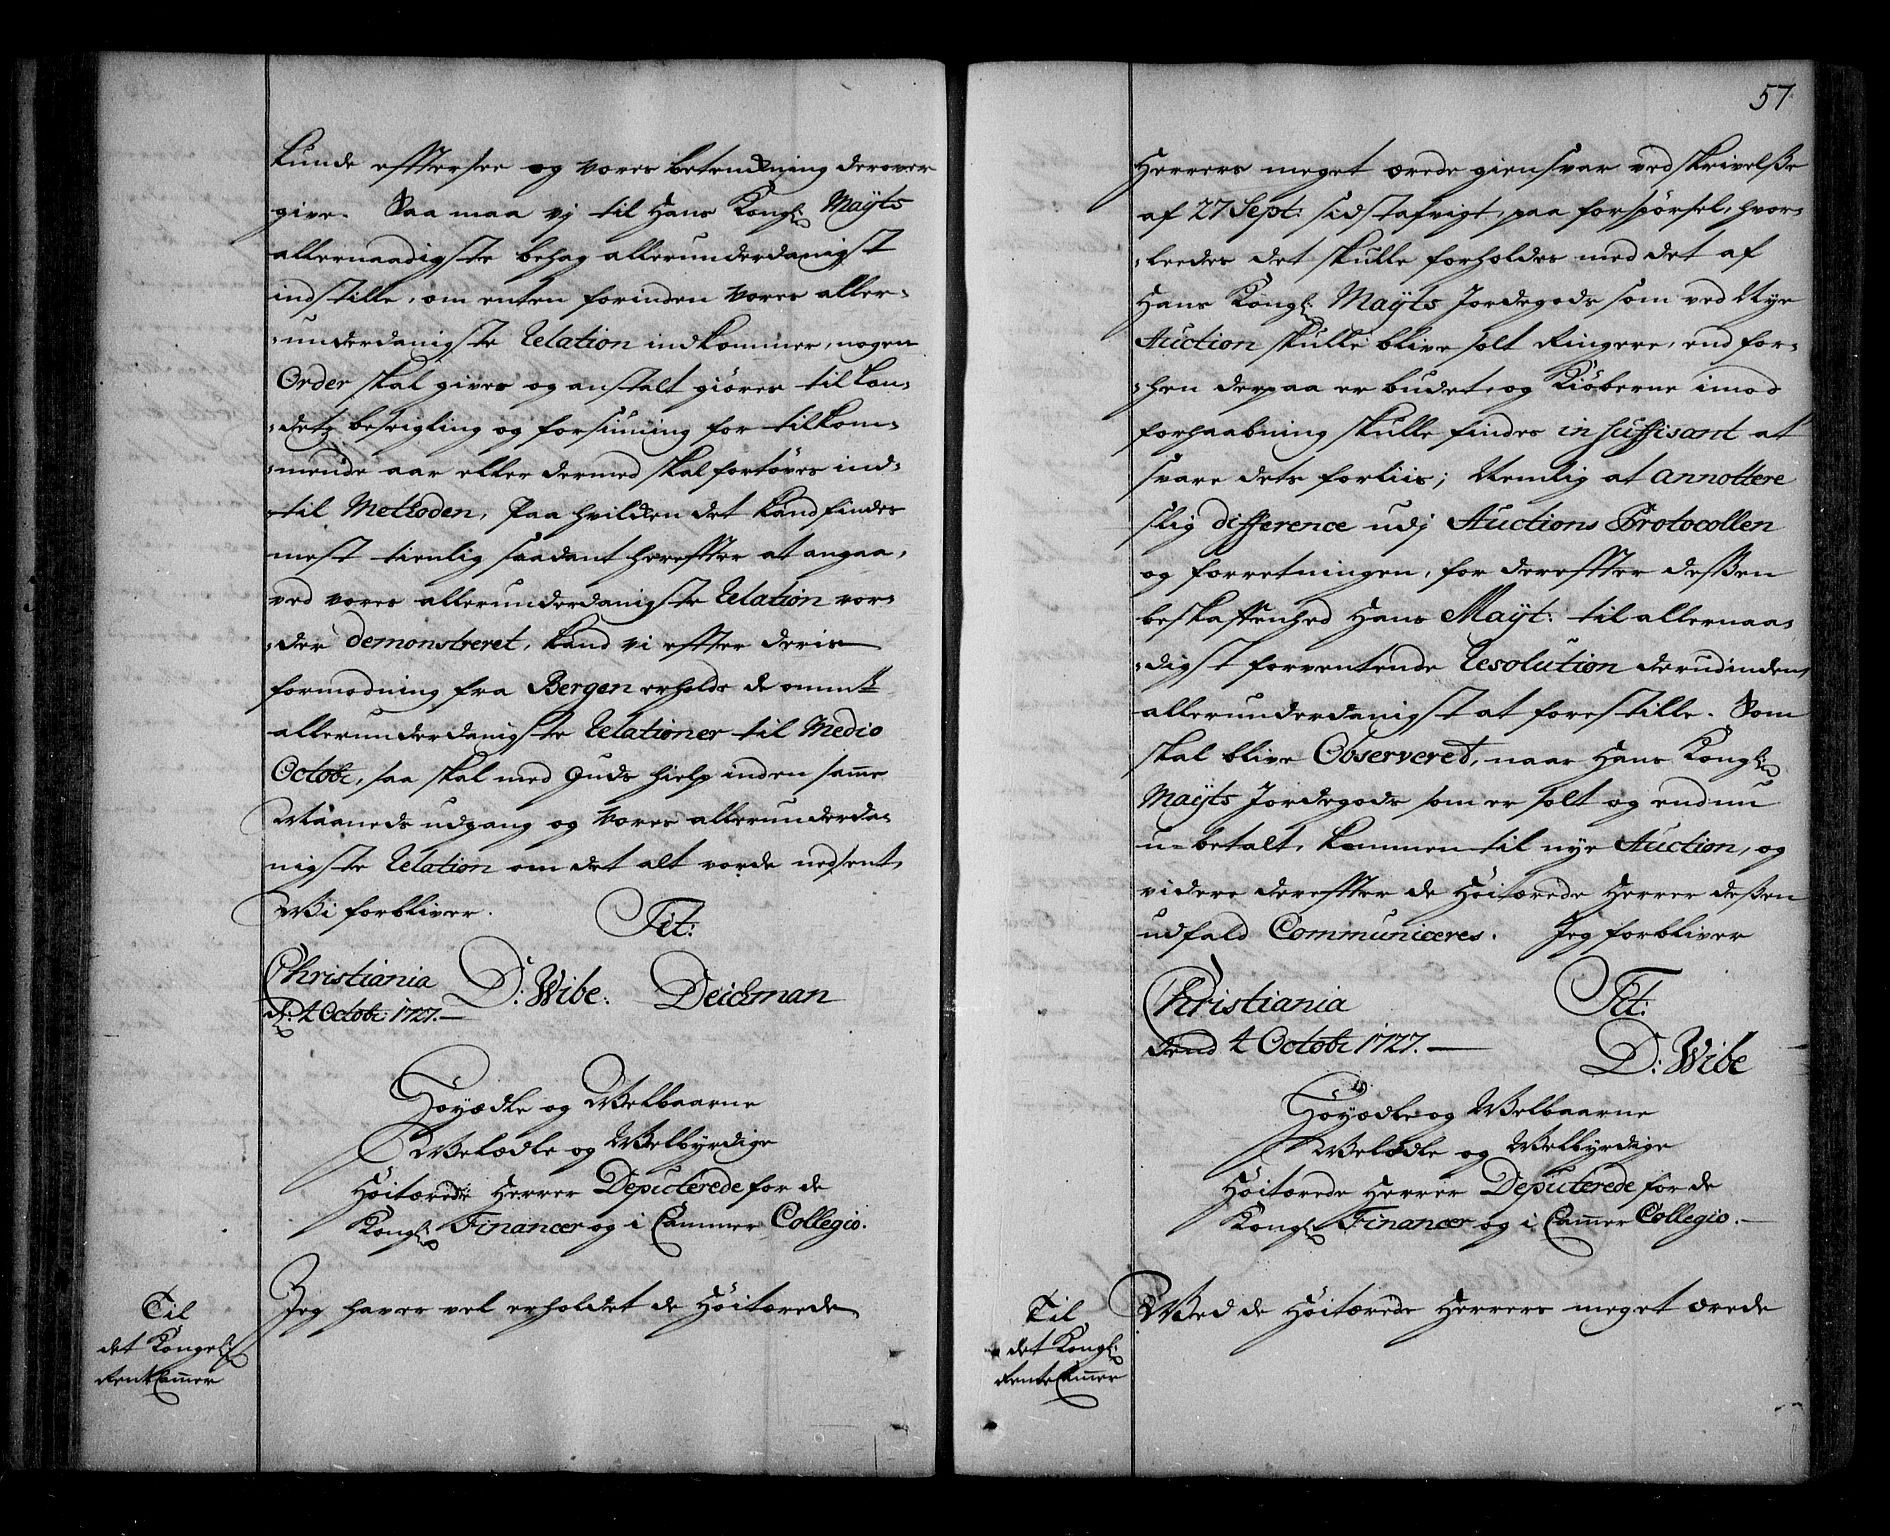 kunde efftersee og vores betenckning derover
give. Saa maa vj til Hans Kongl: Mayts
allernaadigste behag allerunderdanigst
indstille, om enten forinden vores aller-
-underdanigste Relation indkommer, nogen
Order skal gives og anstalt giøres til Lan-
-detz beseigling og forsiuning for tilkom-
-mende aar eller dermed skal fortøves ind-
-til Metoden, Paa hvilcken det kand findes
mest tienlig saadant hereffter at angaa,
ved vores allerunderdanigste Relation vor-
-der demonstreret, kand vi effter deris
formodning fra Bergen erholde de ommt
allerunderdanigste Relationer til Medio
Octobr, saa skal med Guds hielp inden samme
Maaneds udgang og vores allerunderda-
nigste Relation om det alt vorde nedsent,
Wi forbliver. Tit:
Christiania D: Wibe: Deichman
d: 4 Octobr: 1727.
Høyædle og Welbaarne
Welædle og Welbyrdige
Høitærede Herrer Deputerede for de
Kongl: Financer og i Cammer Collegio.
Til
det Kongel:
Rentkammer
Jeg haver vel erholdet de Høitærede
57
Herrers meget ærede giensvar ved skrivelsse
af 27 Sept: sidstafvigt, paa forspørsel, hvor-
-leedes det skulle forholdes med det af
Hans Kongl: Mayts Jordegods som ved Nye
Auction skulle blive solt Ringere, end for-
-hen derpaa er budet, og Kiøberne imod
forhaabning skulle findes insuffisant at
svare dets forliis; Nemlig at annottere
slig difference udj Auctions Protocollen
og forretningen, for dereffter dessen
beskaffenhed Hans Mayt: til allernaa-
-digst forventende Resolution derudinden
allerunderdanigst at forestille. Som
skal blive Observeret, naar Hans Kongl:
Mayts Jordegods som er solt og endnu
u-betalt, kommen til nye Auction, og
videre dereffter de Høitærede Herrer dessen
udfald Communiceres. Jeg forbliver
Christiania Tit:
dend 4 Octobr 1727. D: Wibe
Høyædle og Welbaarne
Welædle og Welbyrdige
Høitærede Herrer Deputerede for de
Kongl: Financer og i Cammer Collegio.
Til
det Kongl:
Rentekammer
Wed de Høitærede Herrers meget ærede